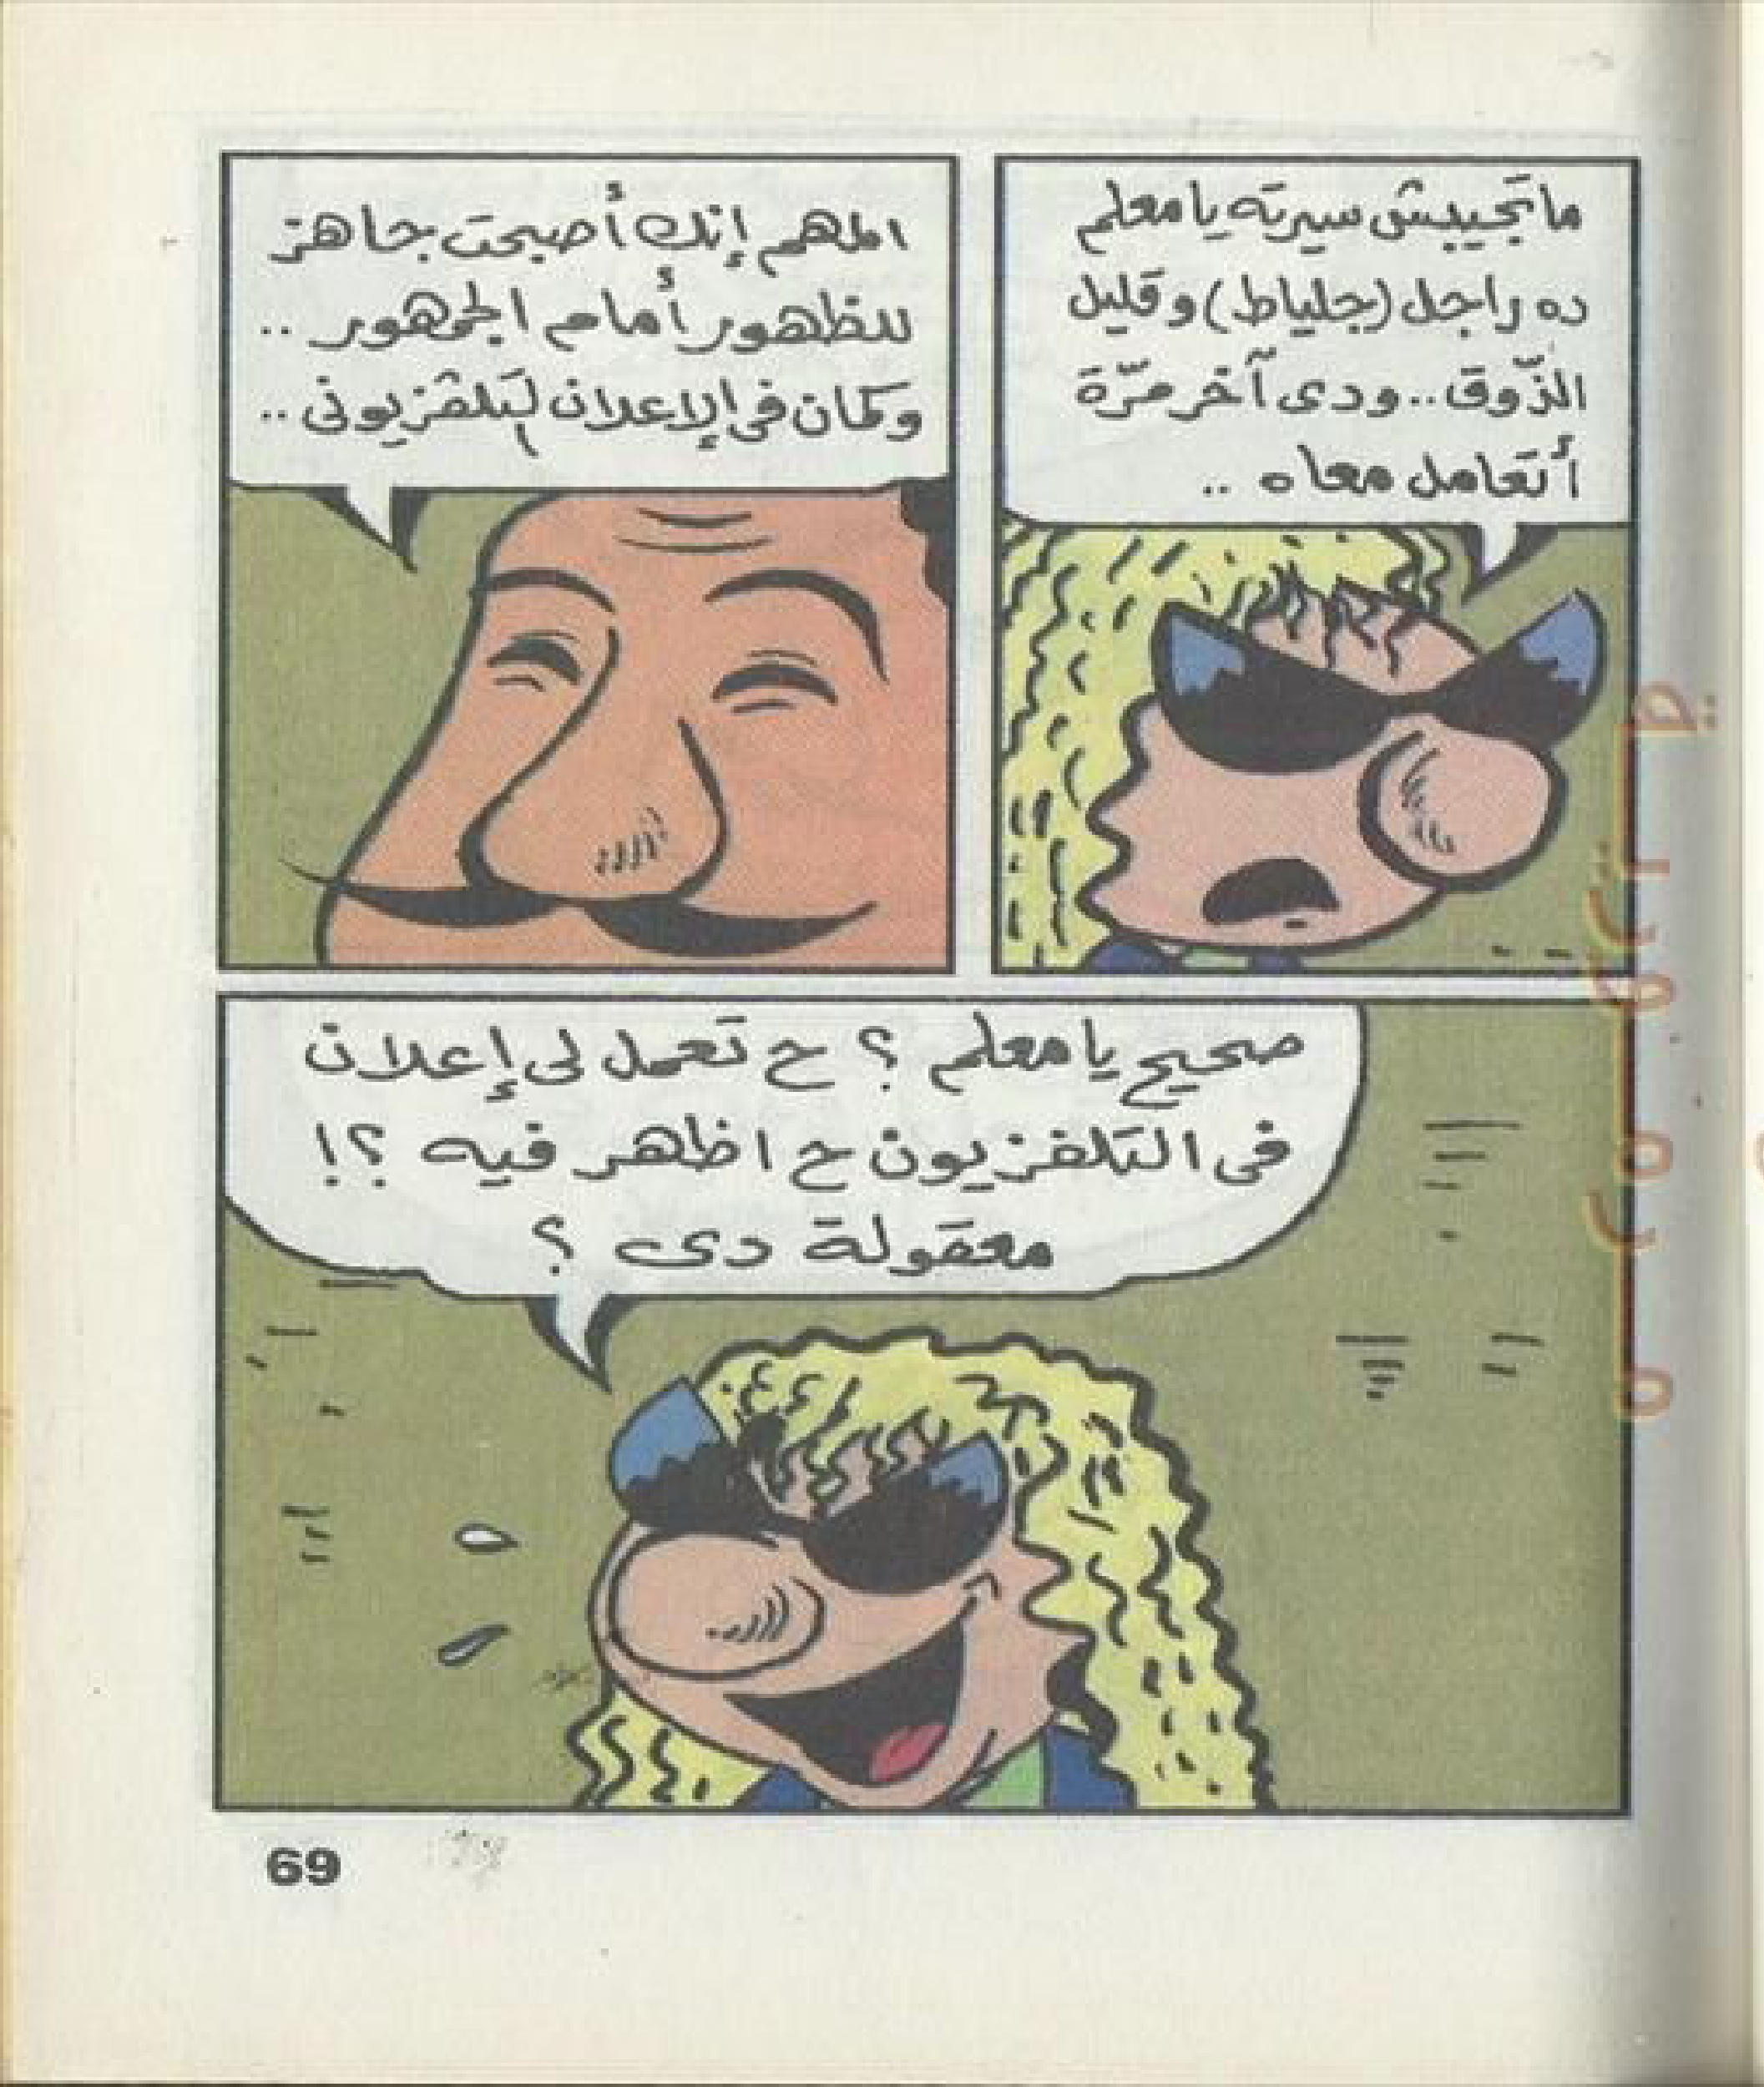 ما تجيبش سيرته يا معلم
ده راجل (جلياط) وقليل
الذّوق.. ودى آخر مرّة
أتعامل معاه ..
المهم إنك أصبحت جاهز
للظهور أمام الجمهور ..
وكمان فى الإعلان التلفزيونى ..
صحيح يا معلم ؟ ح تعمل لى إعلان
فى التلفزيون ح اظهر فيه ؟!
معقولة دى ؟
69